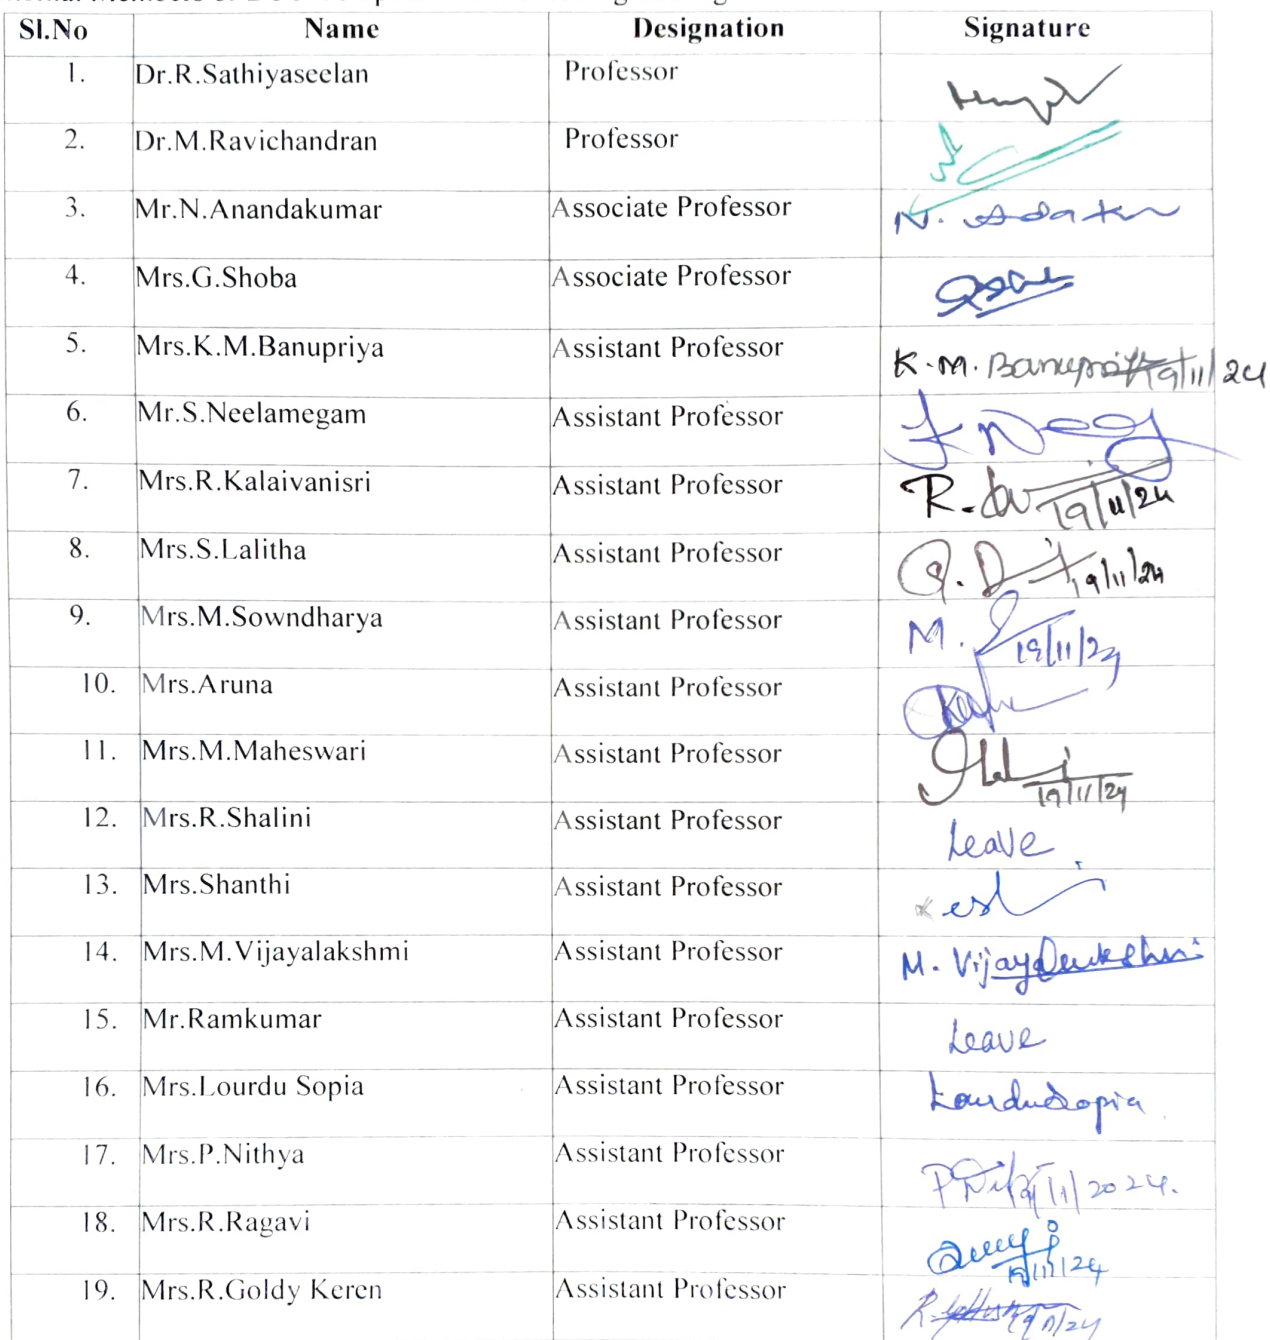 Sl.No Name Designation Signature
1. Dr.R.Sathiyaseelan Professor
2. Dr.M.Ravichandran Professor
3. Mr.N.Anandakumar Associate Professor N.
4. Mrs.G.Shoba Associate Professor
5. Mrs.K.M.Banupriya Assistant Professor K.M. Banupriya 19/11/24
6. Mr.S.Neelamegam Assistant Professor
7. Mrs.R.Kalaivanisri Assistant Professor R. 19/11/24
8. Mrs.S.Lalitha Assistant Professor 19/11/24
9. Mrs.M.Sowndharya Assistant Professor M. 19/11/24
10. Mrs.Aruna Assistant Professor
11. Mrs.M.Maheswari Assistant Professor 19/11/24
12. Mrs.R.Shalini Assistant Professor Leave
13. Mrs.Shanthi Assistant Professor
14. Mrs.M.Vijayalakshmi Assistant Professor M. Vijayalakshmi
15. Mr.Ramkumar Assistant Professor Leave
16. Mrs.Lourdu Sopia Assistant Professor LourduSopia
17. Mrs.P.Nithya Assistant Professor 19/11/2024.
18. Mrs.R.Ragavi Assistant Professor 19/11/24
19. Mrs.R.Goldy Keren Assistant Professor R. 19/11/24